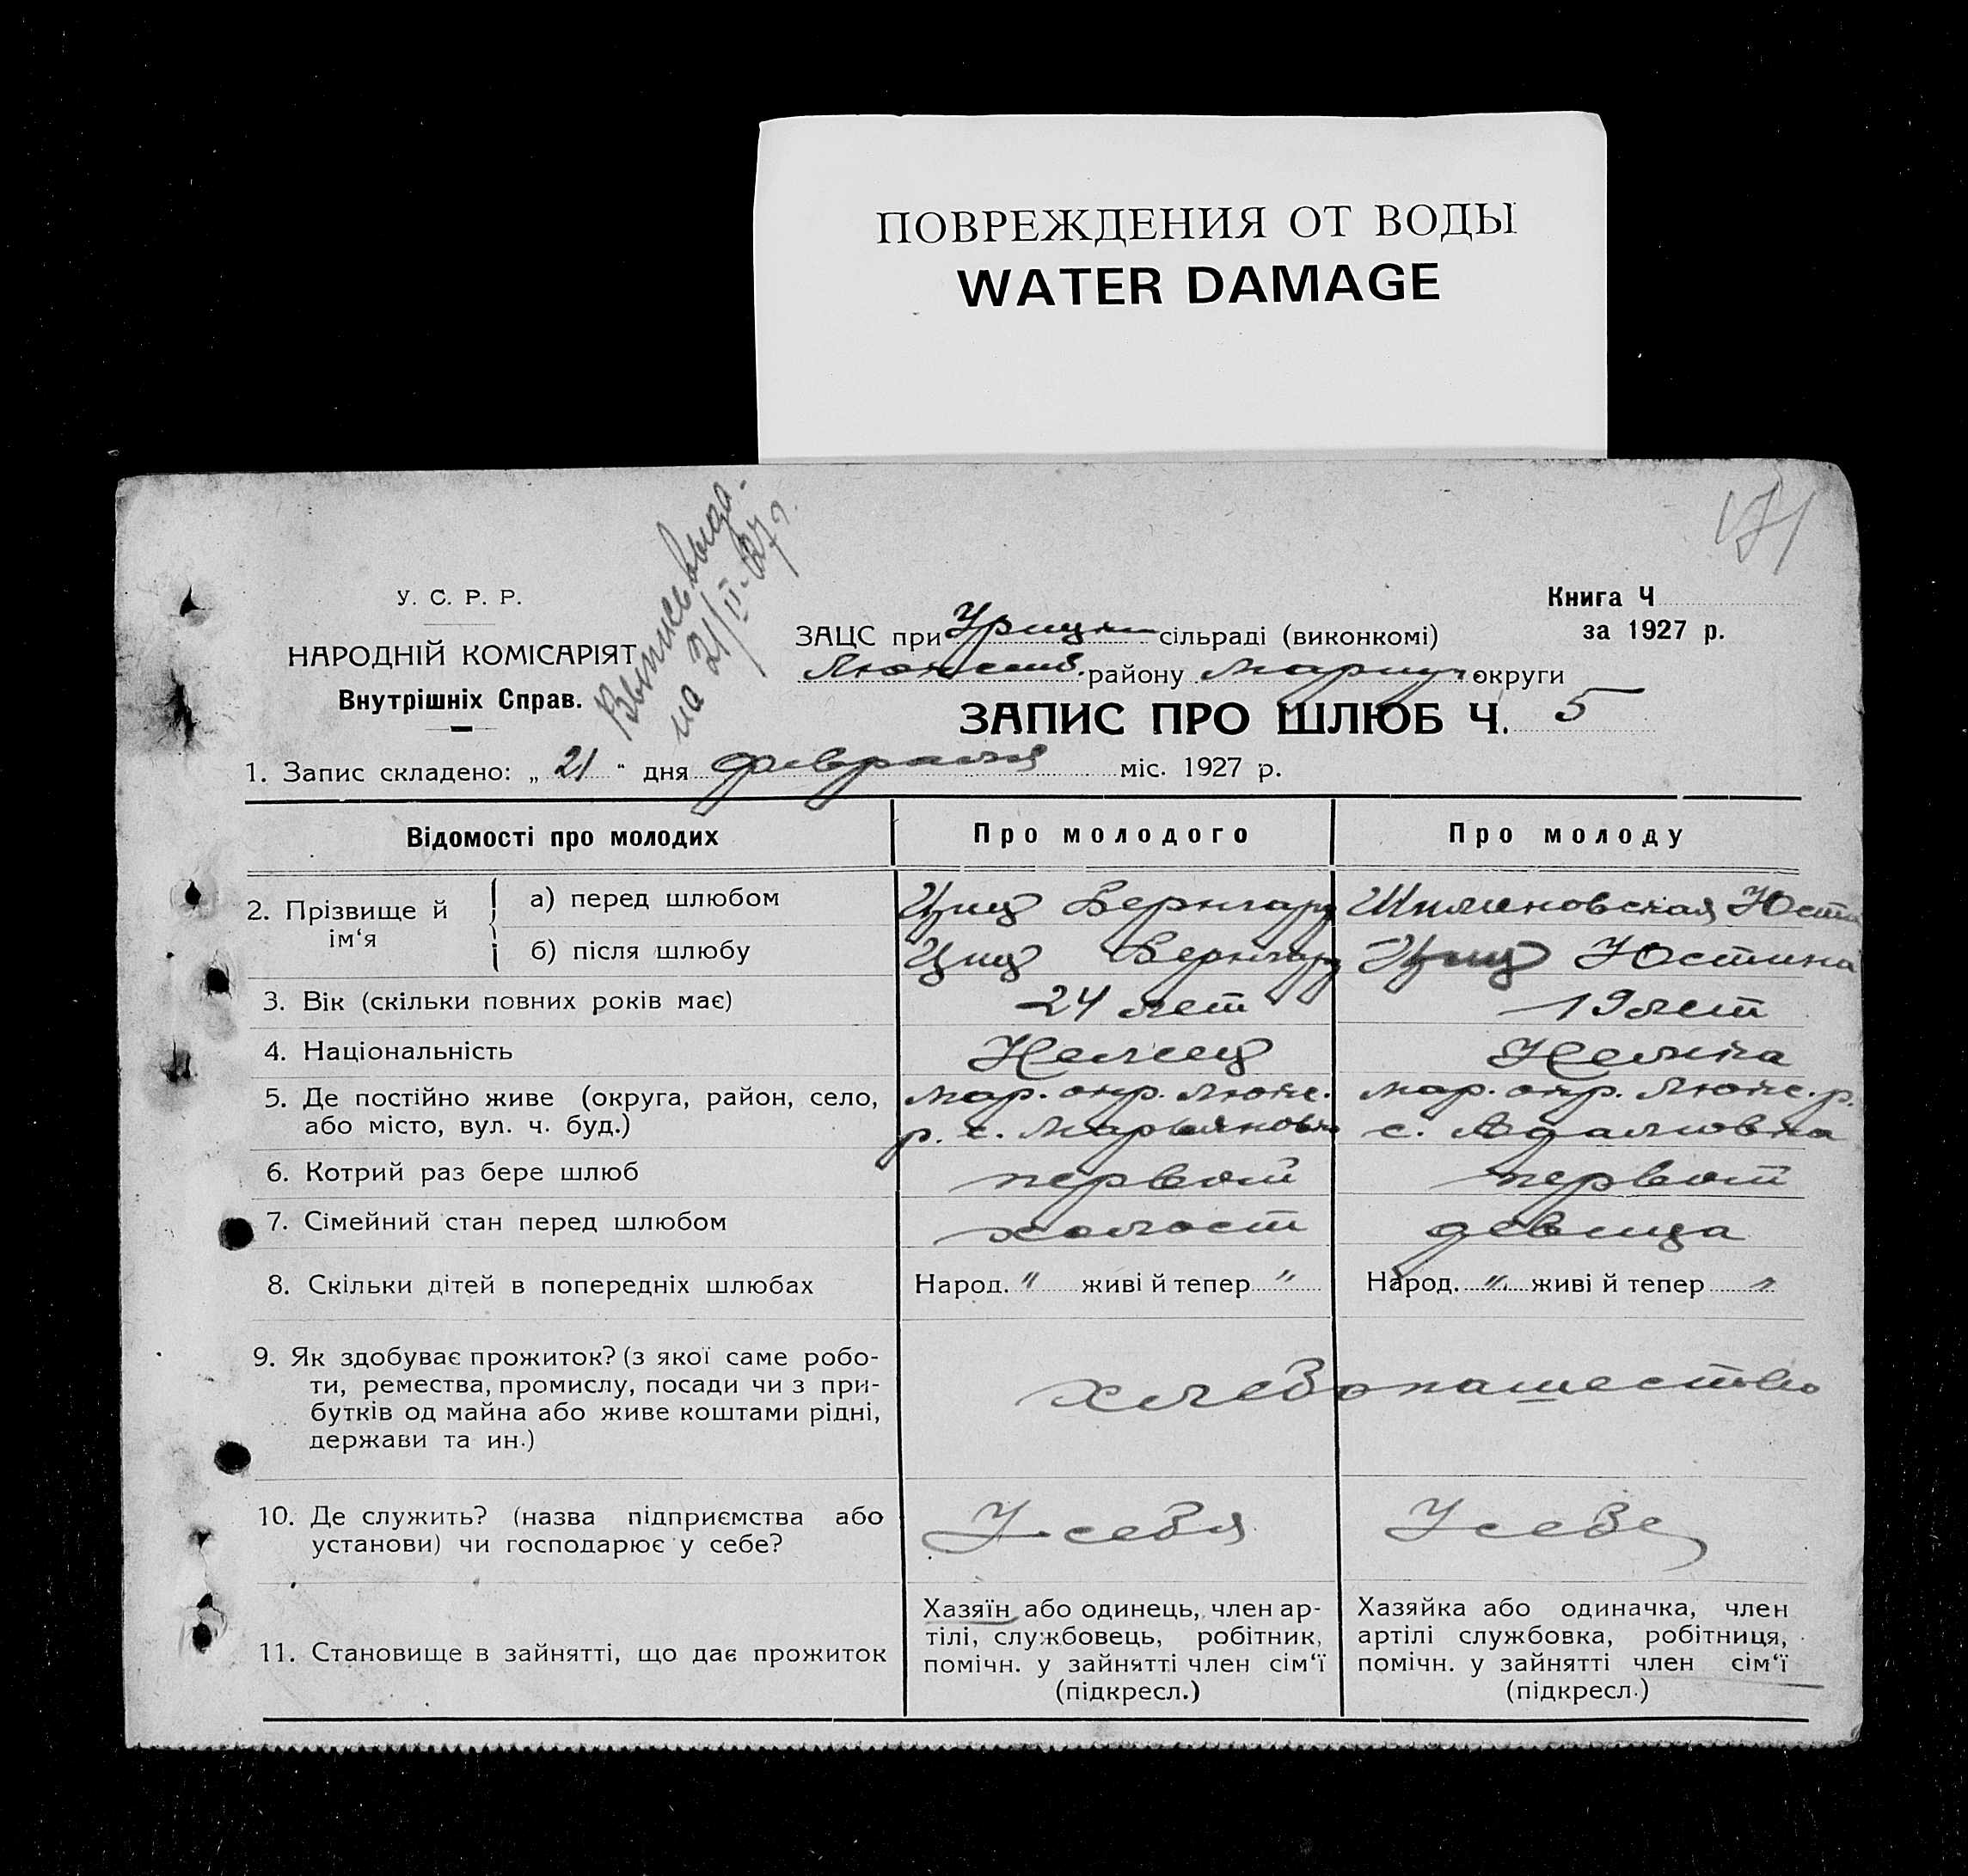 ПОВРЕЖДЕНИЯ ОТ ВОДЫ
WATER DAMAGE
171
У. С. Р. Р.
НАРОДНІЙ КОМІСАРІЯТ
Внутрішніх Справ.
на 21/II-27 г.
Книга Ч
за 1927 р.
ЗАЦС при сільраді (виконкомі)
Люксемб. району Мариуп. округи
ЗАПИС ПРО ШЛЮБ Ч. 5
1. Запис складено: „ 21 “ дня февраля міс. 1927 р.
Відомості про молодих Про молодого Про молоду
2. Прізвище й ім‘я
а) перед шлюбом Цищ Бернгард Шимановская Юсти
б) після шлюбу Цищ Бернгард Цищ Юстина
3. Вік (скільки повних років має) 24 лет 19 лет
4. Національність Немец Немка
5. Де постійно живе (округа, район, село, мар. окр. Люкс. мар. окр. Люкс. р.
або місто, вул. ч. буд.) р. с. Марьяновка с. Адамовка
6. Котрий раз бере шлюб первый первый
7. Сімейний стан перед шлюбом холост девица
8. Скільки дітей в попередніх шлюбах Народ. " живі й тепер " Народ. " живі й тепер "
9. Як здобуває прожиток? (з якої саме робо-
ти, ремества, промислу, посади чи з при-
бутків од майна або живе коштами рідні,
держави та ин.)
хлебопашество
10. Де служить? (назва підприємства або
установи) чи господарює у себе?
У себя У себе
11. Становище в зайнятті, що дає прожиток
Хазяїн або одинець, член ар-
тілі, службовець, робітник,
помічн. у зайнятті член сім‘ї
(підкресл.)
Хазяйка або одиначка, член
артілі службовка, робітниця,
помічн. у зайнятті член сім‘ї
(підкресл.)